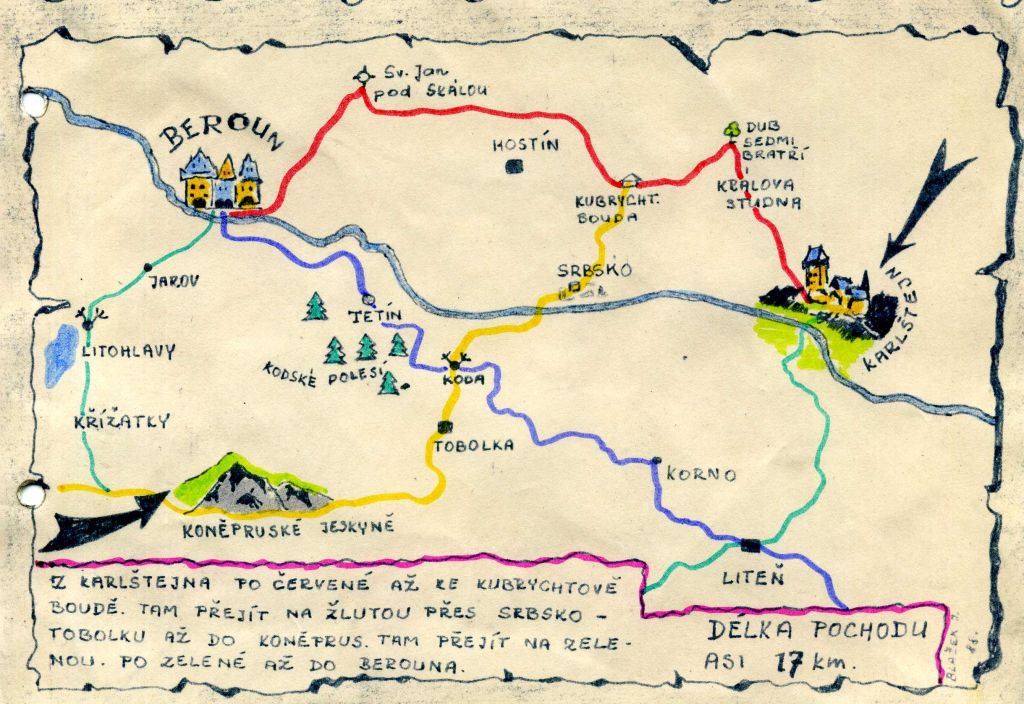 Sv. Jan
pod SKÁLOU
BEROUN
HOSTÍN
DUB
SEDMI
BRATŘÍ
KRÁLOVA
STUDNA
KUBRYCHT.
BOUDA
SRBSKO
KARLŠTEJN
JAROV
TETÍN
LITOHLAVY
KODSKÉ POLESÍ
KODA
KŘÍŽATKY
TOBOLKA
KORNO
KONĚPRUSKÉ JESKYNĚ
LITEŇ
Z KARLŠTEJNA PO ČERVENÉ AŽ KE KUBRYCHTOVĚ
BOUDĚ. TAM PŘEJÍT NA ŽLUTOU PŘES SRBSKO -
TOBOLKU AŽ DO KONĚPRUS. TAM PŘEJÍT NA ZELE-
NOU. PO ZELENÉ AŽ DO BEROUNA.
DELKA POCHODU
ASI 17 km.
BLAŽEK J.